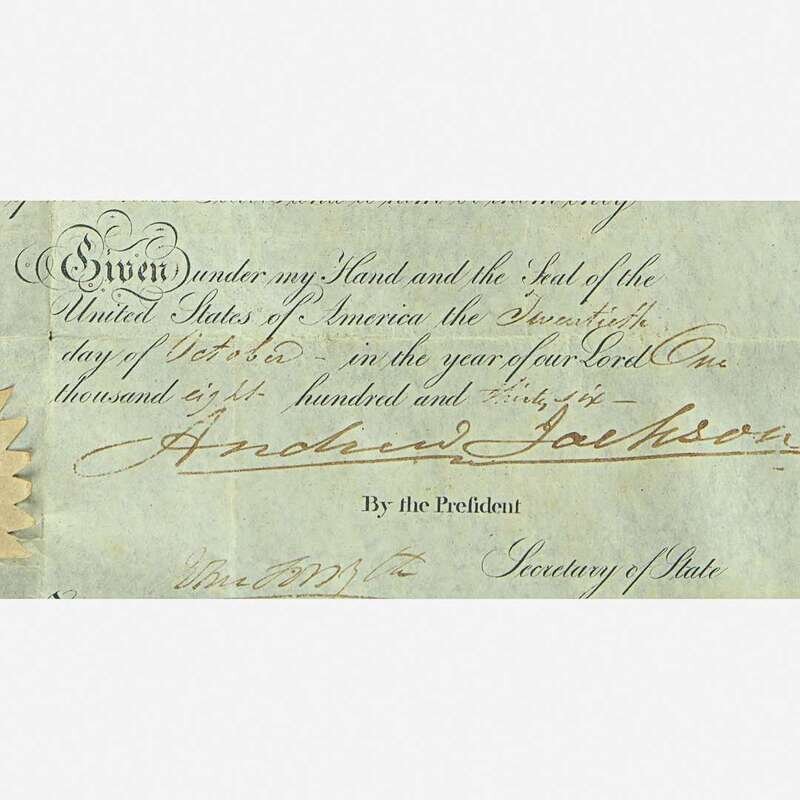 Given under my Hand and the Seal of the
United States of America the Twentieth
day of October - in the year of our Lord One
thousand eight hundred and thirty six -
Andrew Jackson
By the Preſident
Jno Forsyth Secretary of State